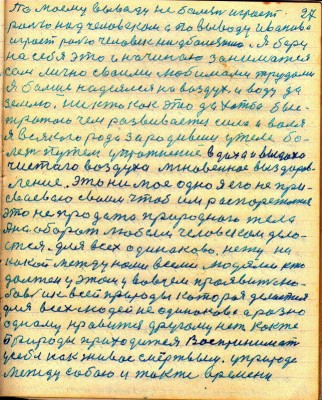 По моему выводу не балынь играет 27.
ролю над человеком а по выводу Иванова
играет ролю человек над балезню. Я беру
на себя это и начинаю заниматся
сам лично своими любимами трудами
Я балш надеялся на воздух и воду да
землю. никто как это да
чем развивается сила и воля
я всякого рода зародивши у тела бо-
лезь путем упражнение вдиха и выдоха
чистаго воздуха мгновенное выздоров-
ление. Это ни мое одно я его не при-
сваеваю своим чтоб им распоряжатся
это не продажа природного тела
А на оборот любому человеком дело-
ется. для всех одинаково. нету на
какой между нами всеми людями кто
должен у этом у вовсем проявить но-
в к всей природы которая делается
для всех людей не одинаково а разно
одному нравится другому нет как же
природы приходится Воспринимат
у себя как живое с мертвым. у природе
между собою и такие времени